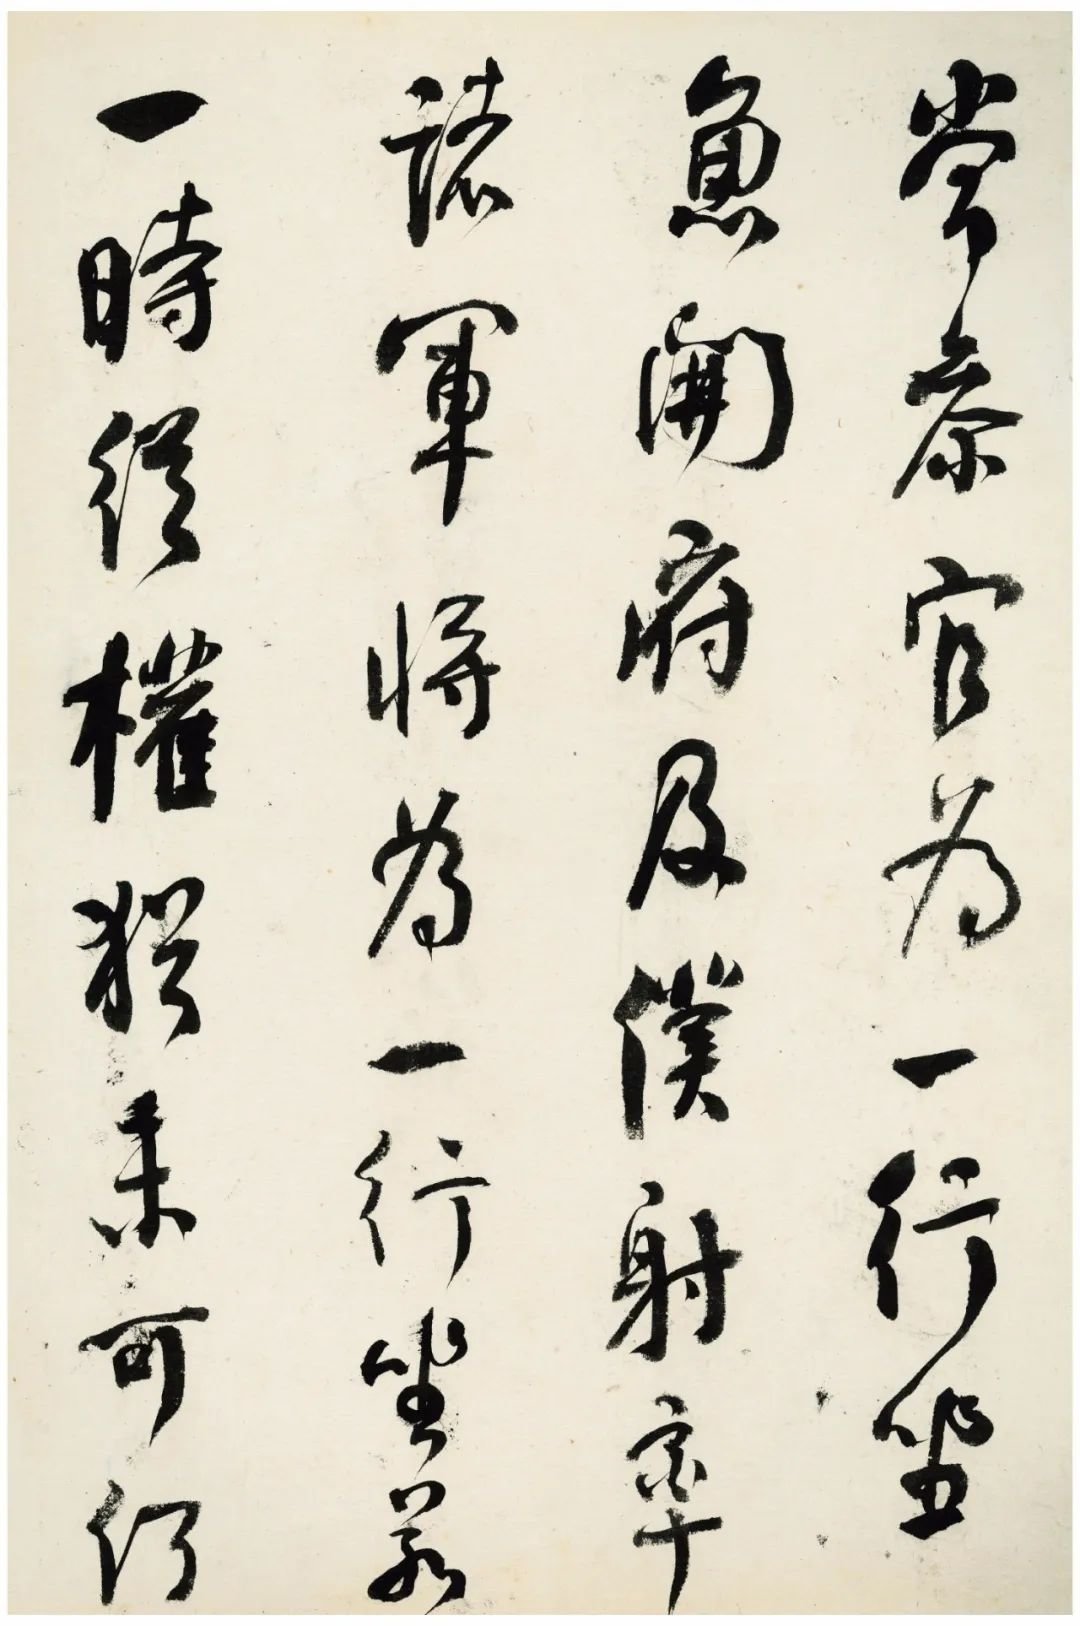 常參官為一行坐
魚開府及僕射率
諸軍將為一行坐若
一時從權猶未可何